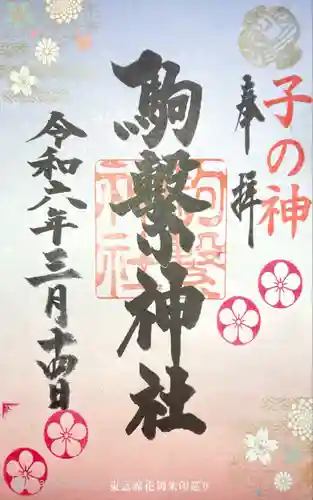 子の神
奉拝
駒繋神社
駒繋神社
令和六年三月十四日
東急線花御朱印巡り